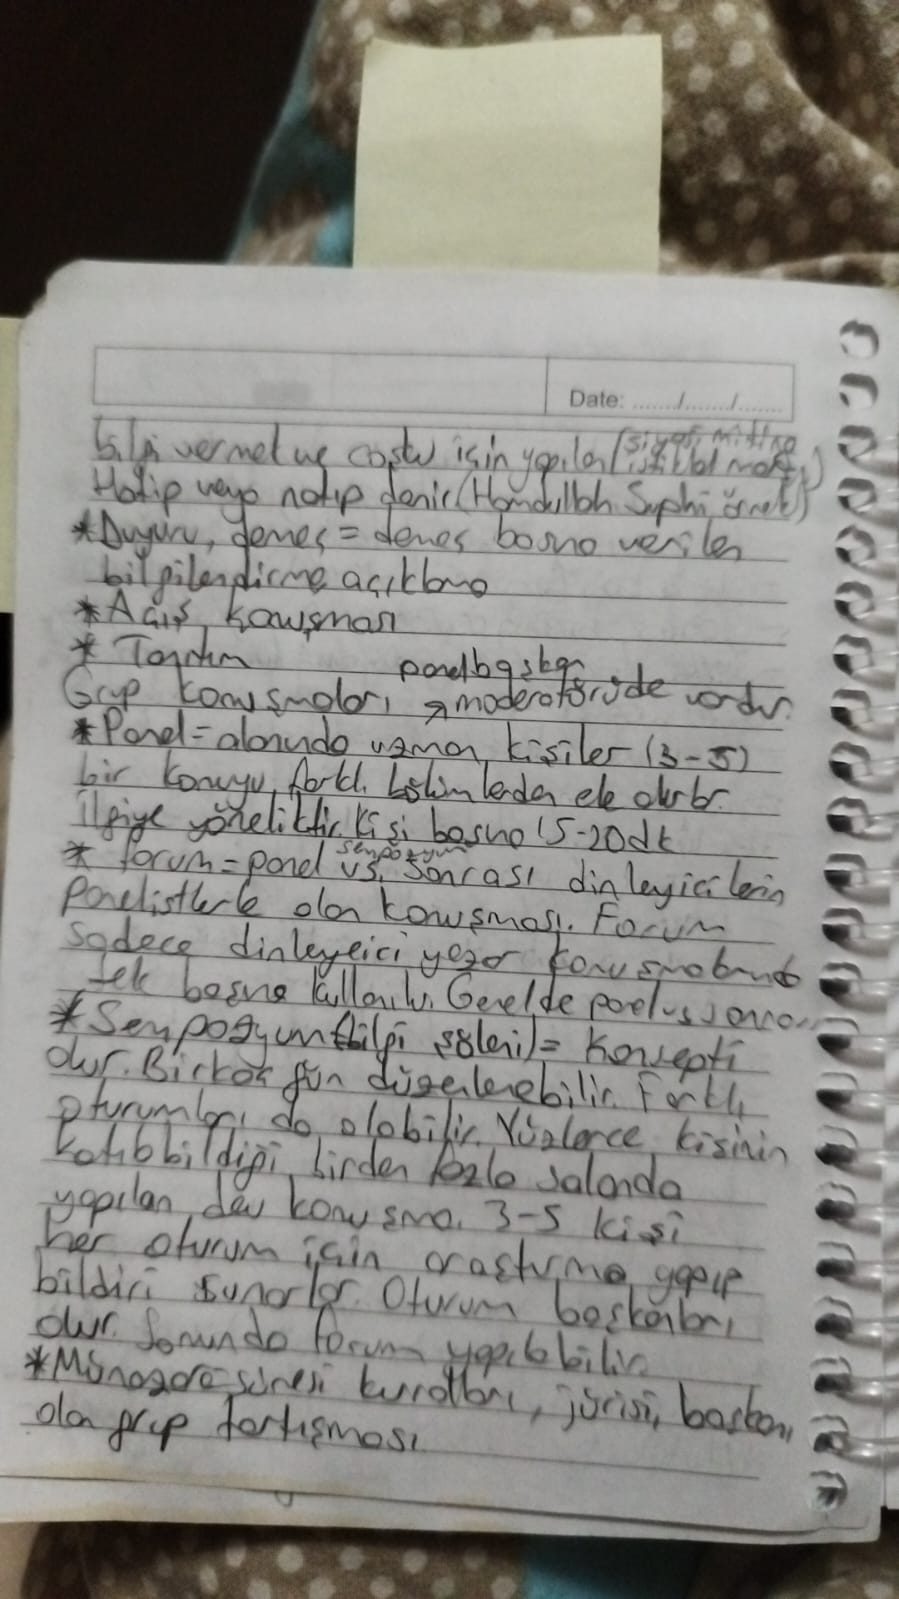 Date: ....../....../......
bilgi vermek ve coştu için yapılan (siyasi miting
istiklal mah.)
Hatip veya natıp denir (Hamdullah Suphi örnek)
*Duyuru, demeç = demeç basına verilen
bilgilendirme açıklama
*Açış konuşması
* Tanıtım
panel başkan
Grup konuşmaları → moderatörü de vardır.
*Panel = alanında uzman kişiler (3-5)
bir konuyu farklı bölümlerden ele alırlar.
ilgiye yöneliktir. Kişi başına 15-20dk
sempozyum
* forum = panel vs. sonrası dinleyicilerin
panelistlerle olan konuşması. Forum
sadece dinleyeici yazar konuşmalarında
tek başına kullanılır. Genelde panel vs sonra..
*Sempozyum (bilgi şöleni) = Konsepti
olur. Birkaç gün düzenlenebilir. Farklı
oturumları da olabilir. Yüzlerce kişinin
katılabildiği, birden fazla salonda
yapılan dev konuşma. 3-5 kişi
her oturum için araştırma yapıp
bildiri sunarlar. Oturum başkanları
olur. Sonunda forum yapılabilir.
*Münazara süresi kuralları, jürisi, başkanı
olan grup tartışması